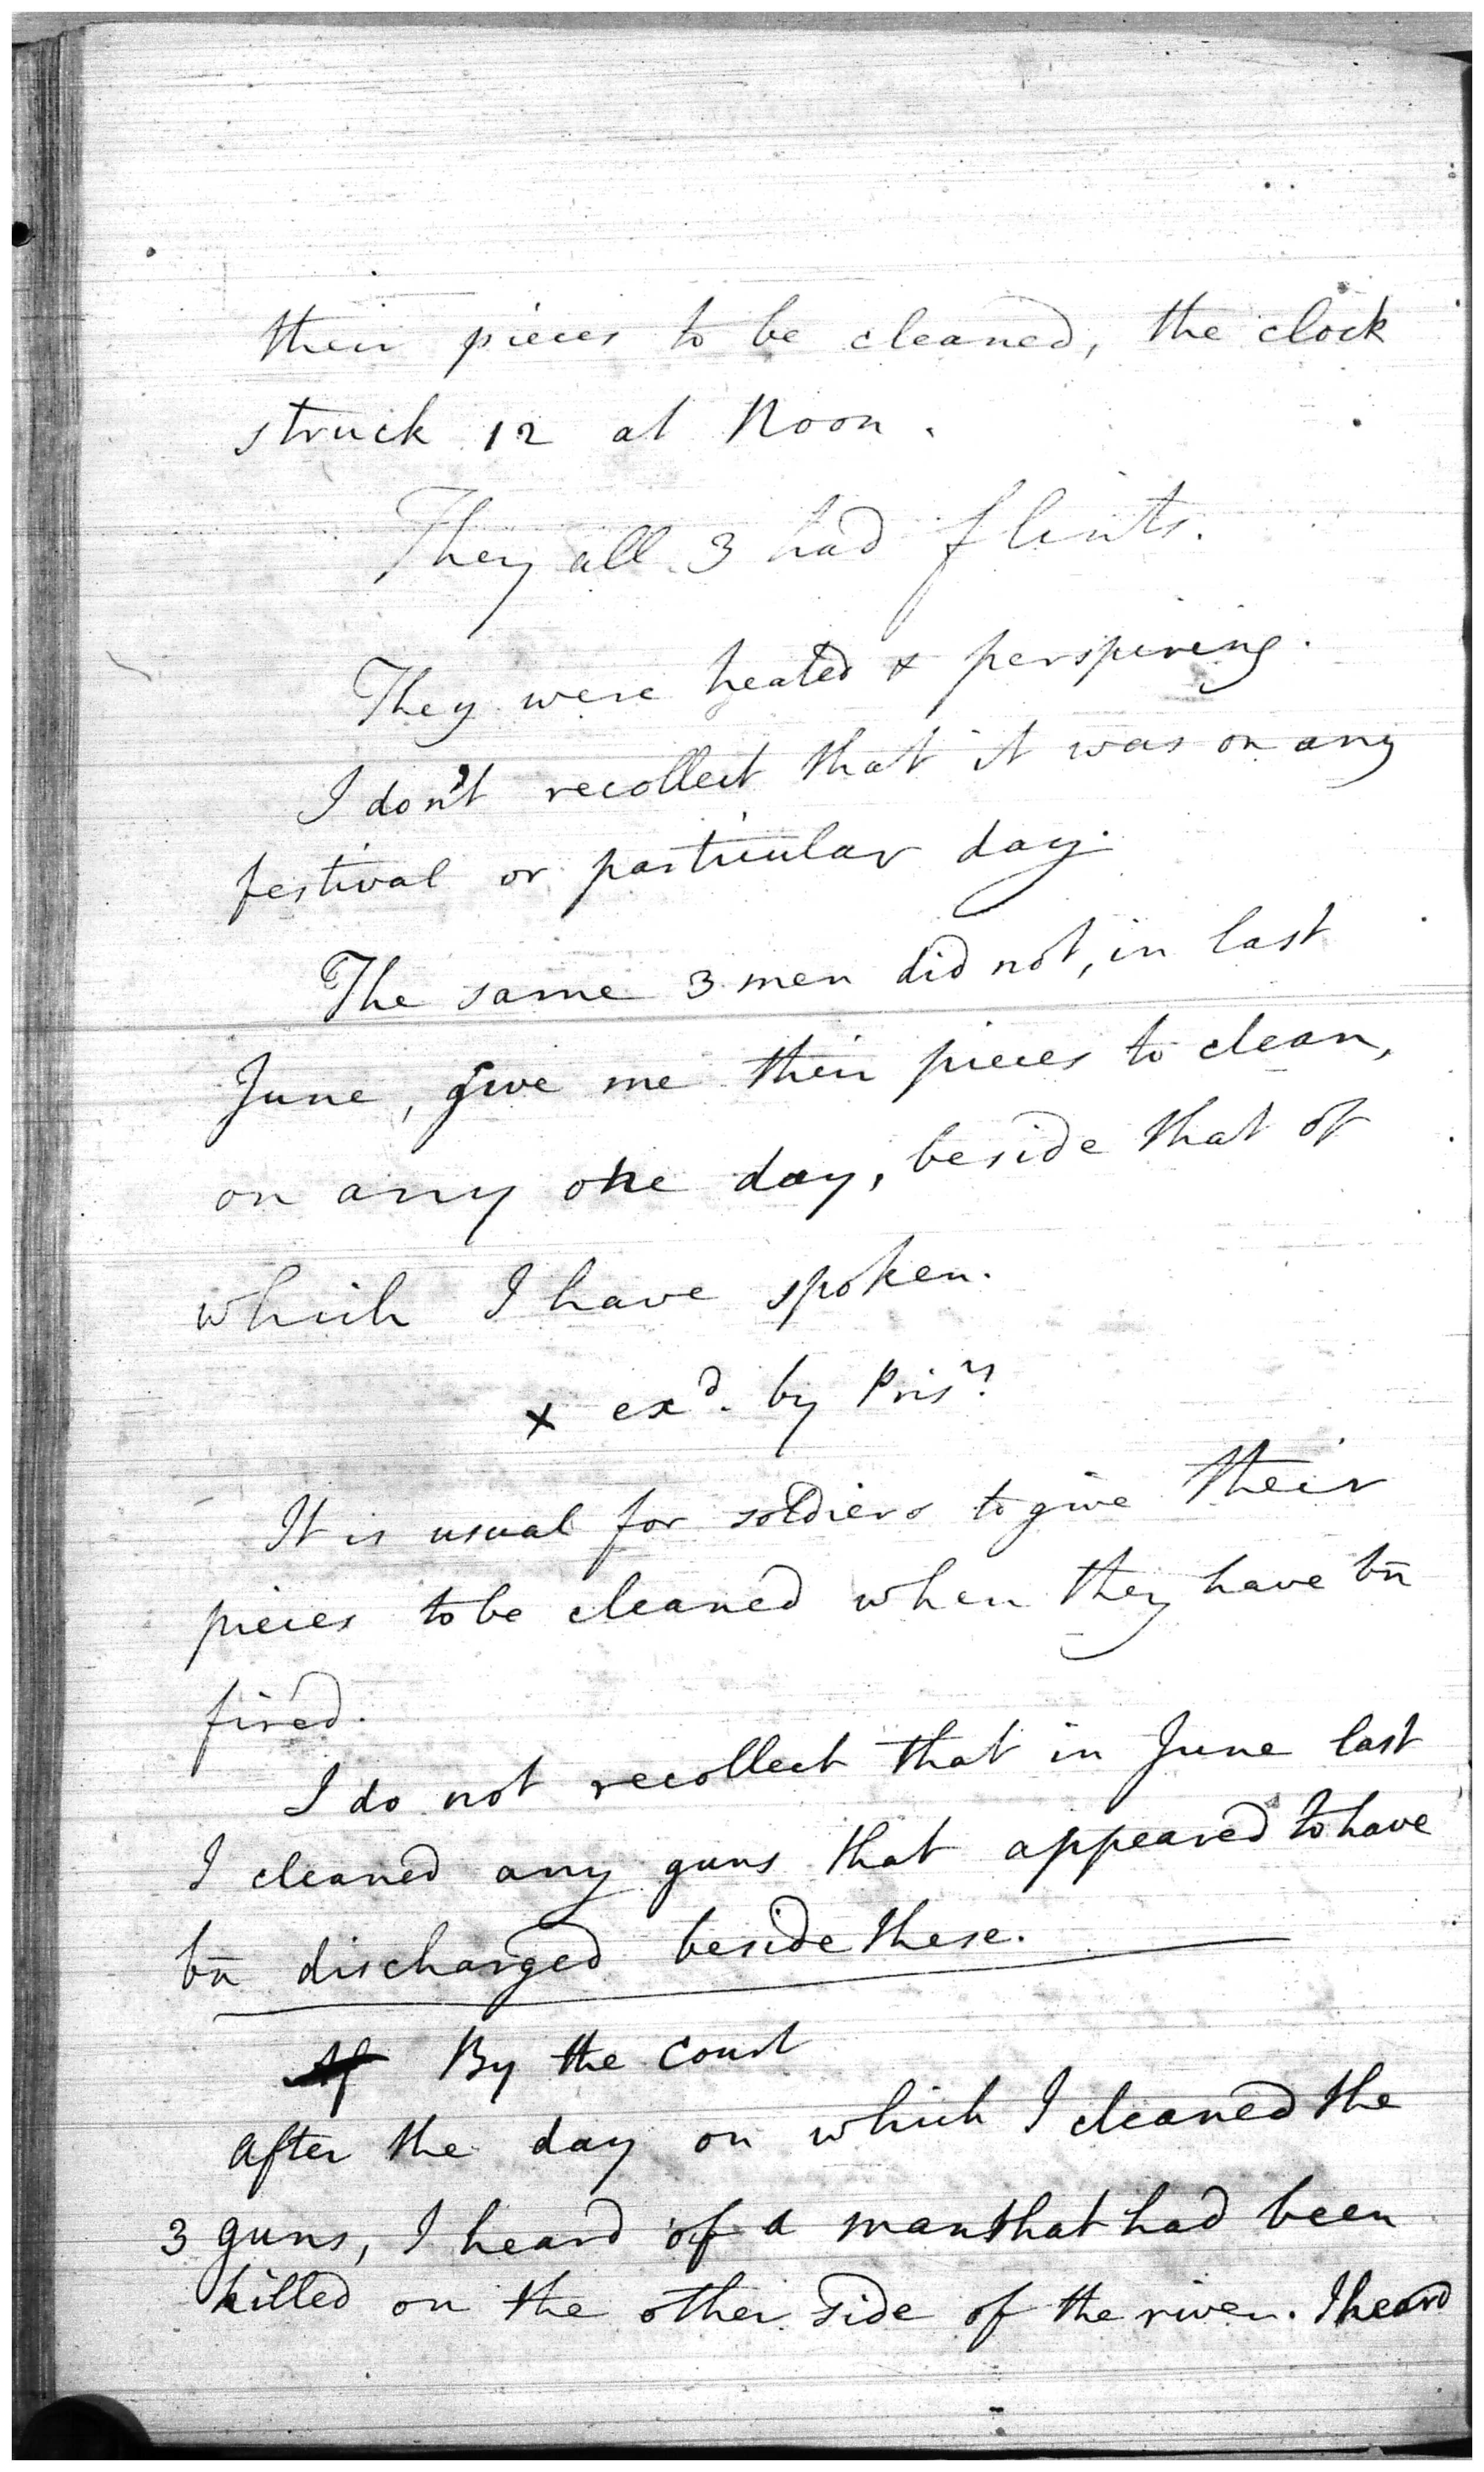 their pieces to be cleaned, the clock
struck 12 at Noon.
They all 3 had flints.
They were heated & perspiring.
I don't recollect that it was on any
festival or particular day.
The same 3 men did not, in last
June, give me their pieces to clean,
on any one day, beside that of
which I have spoken.
x exd. by Prisrs
It is usual for soldiers to give their
pieces to be cleaned when they have bn̄
fired.
I do not recollect that in June last
I cleaned any guns that appeared to have
bn̄ discharged beside these.
By the Court
After the day on which I cleaned the
3 guns, I heard of a man that had been
killed on the other side of the river. I heard